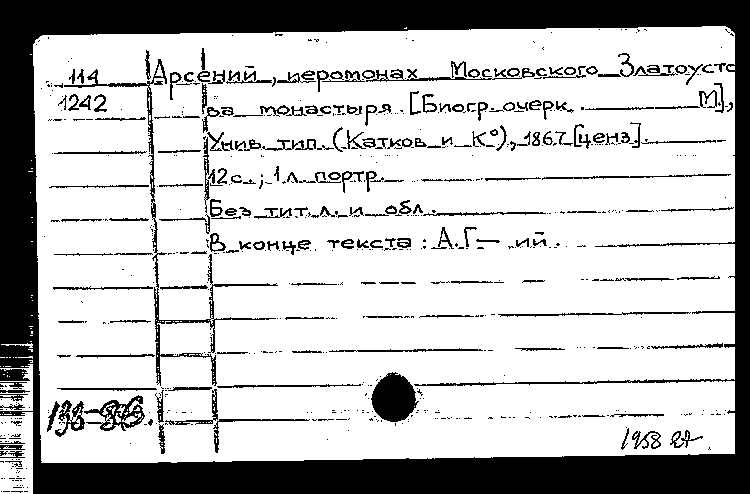 114 Арсений, иеромонах Московского Златоусто
1242 ва монастыря. [Биогр. очерк. М],
Унив. тип. (Катков и К°), 1867 [ценз].
12 с.; 1 л. портр.
Без тит. л. и обл.
В конце текста: А.Г— ий.
1958